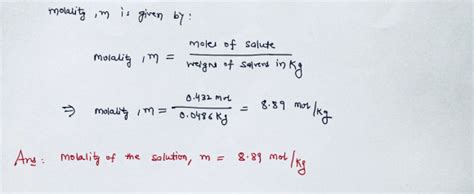 molality, m is given by:
molality, m = moles of solute / weight of solvent in Kg
⇒ molality, m = 0.432 mol / 0.0486 Kg = 8.89 mol/Kg
Ans: molality of the solution, m = 8.89 mol/Kg